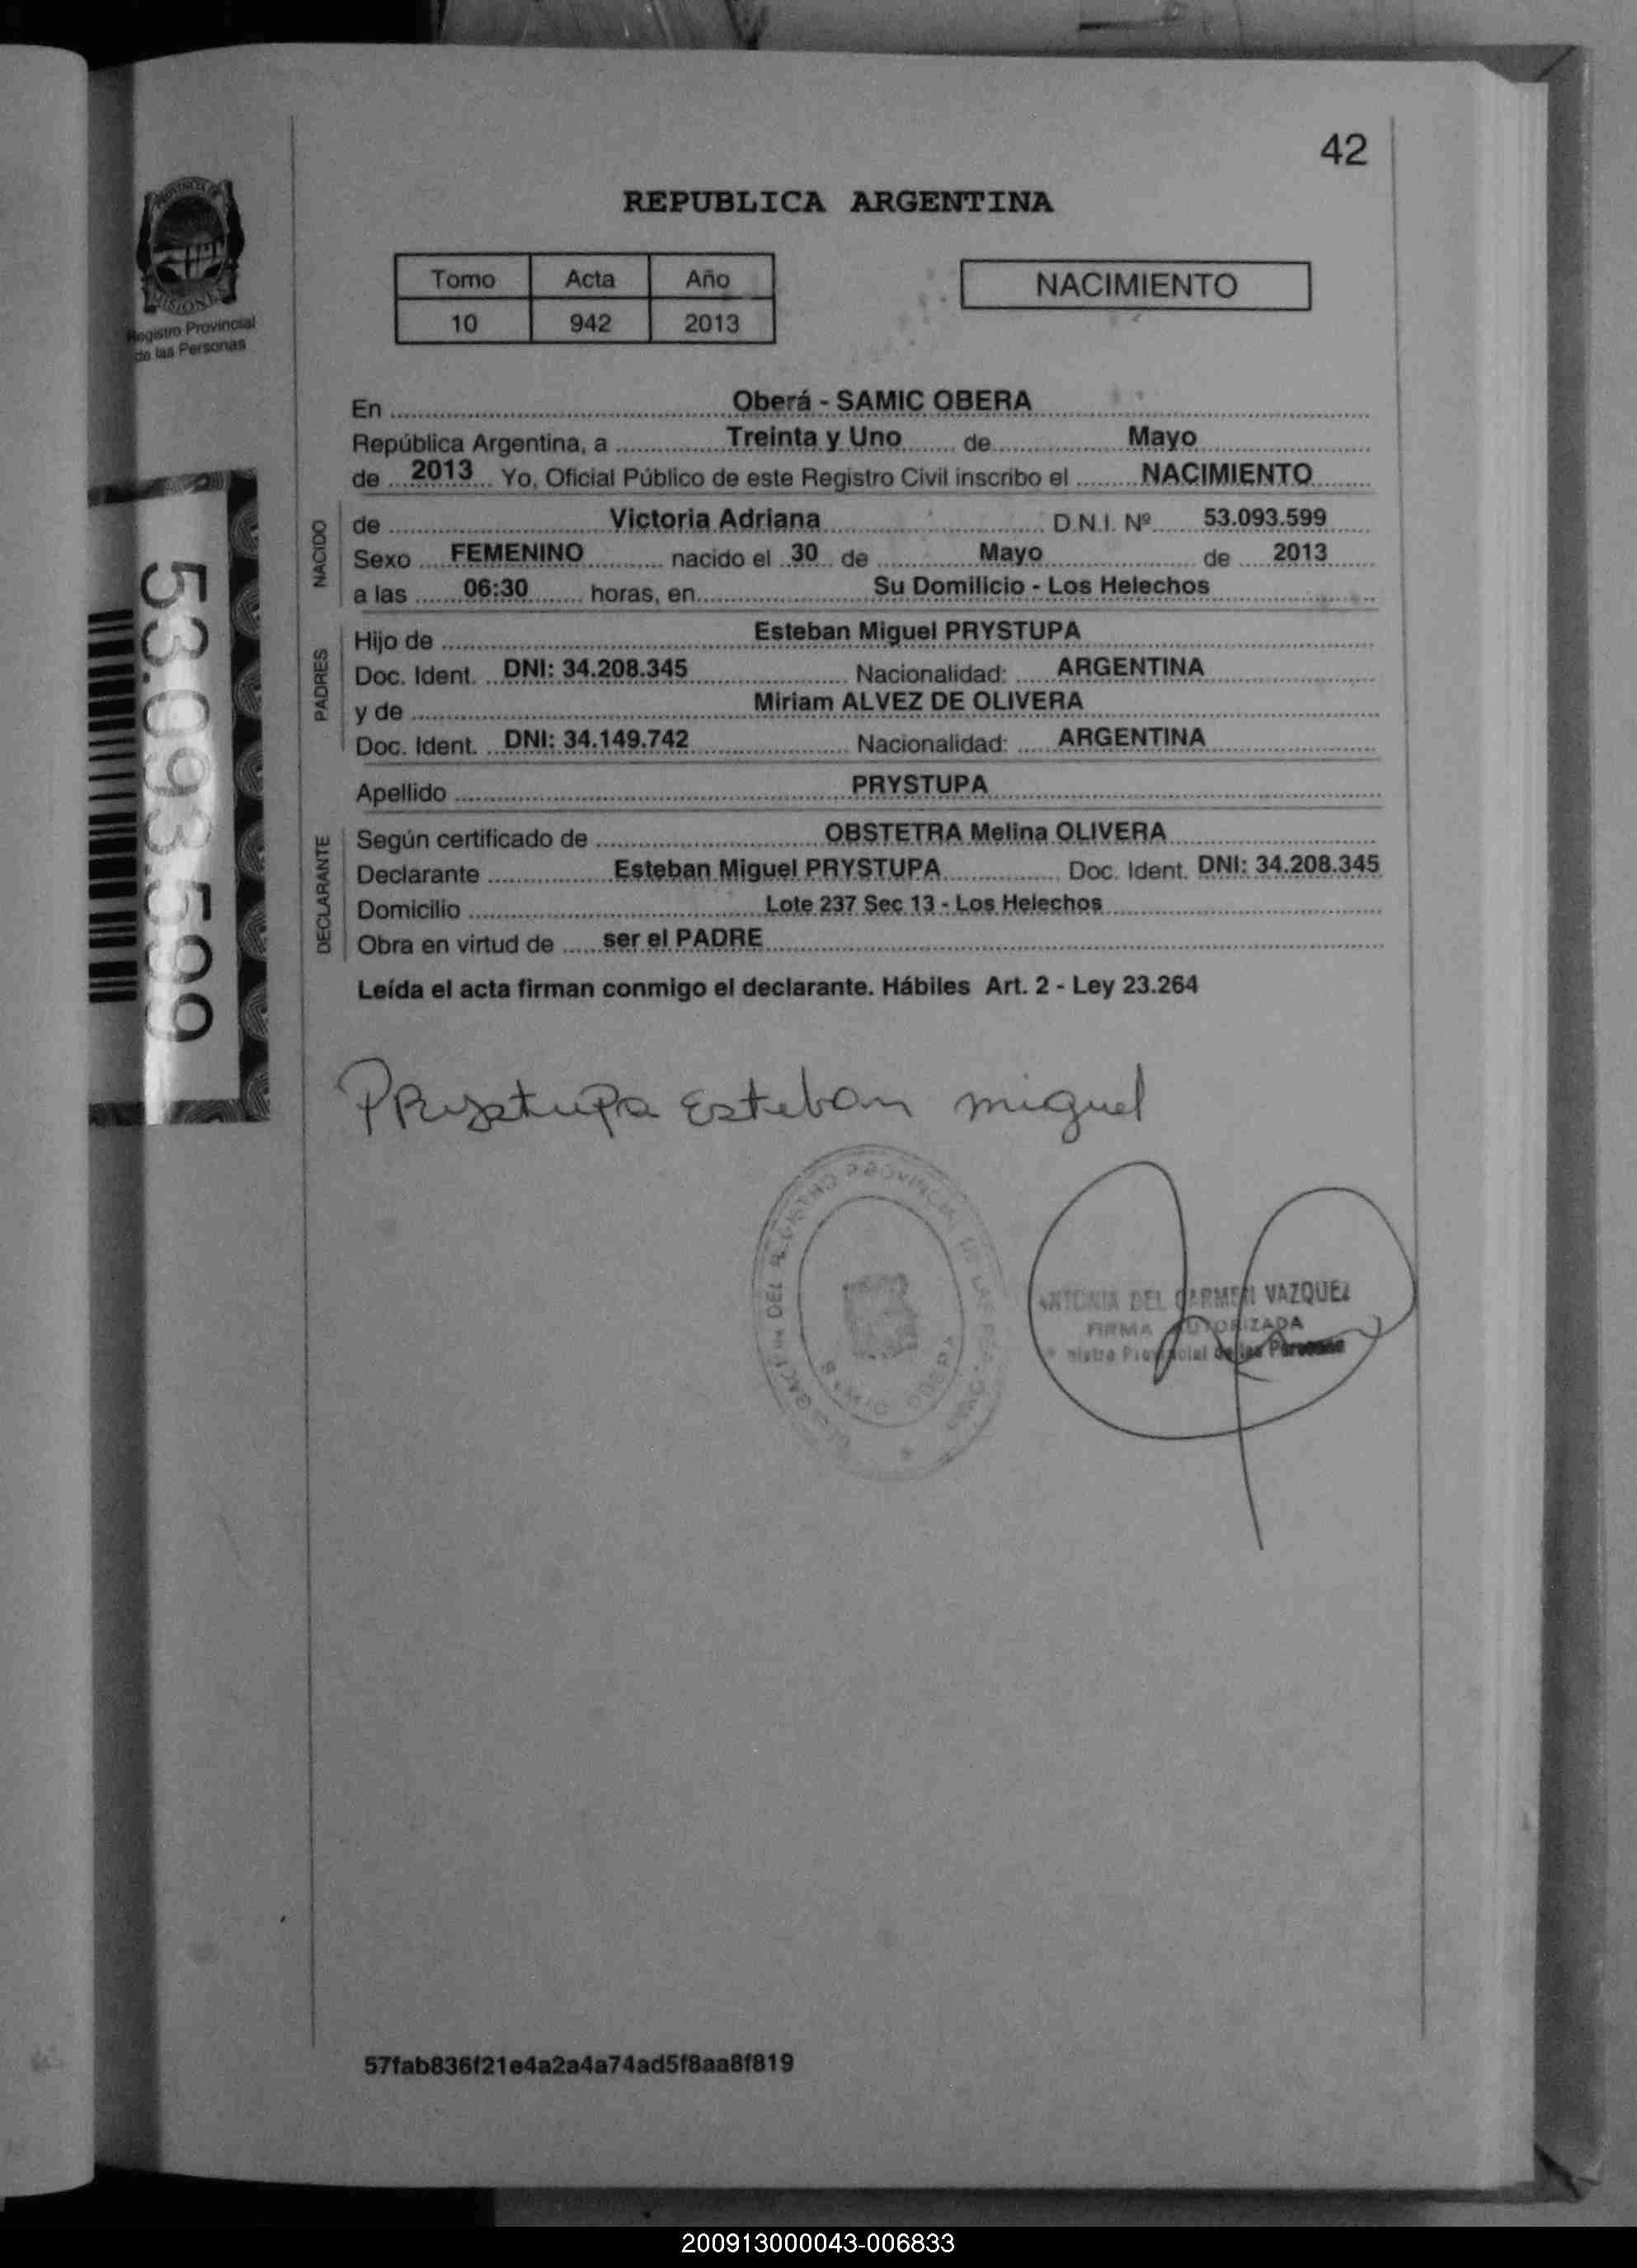 42
PROVINCIA DE
MISIONES
Registro Provincial
de las Personas
REPUBLICA ARGENTINA
Tomo Acta Año
10 942 2013
NACIMIENTO
53.093.599
En Oberá - SAMIC OBERA
República Argentina, a Treinta y Uno de Mayo
de 2013 Yo, Oficial Público de este Registro Civil inscribo el NACIMIENTO
NACIDO
de Victoria Adriana D.N.I. Nº 53.093.599
Sexo FEMENINO nacido el 30 de Mayo de 2013
a las 06:30 horas, en Su Domilicio - Los Helechos
PADRES
Hijo de Esteban Miguel PRYSTUPA
Doc. Ident. DNI: 34.208.345 Nacionalidad: ARGENTINA
y de Miriam ALVEZ DE OLIVERA
Doc. Ident. DNI: 34.149.742 Nacionalidad: ARGENTINA
Apellido PRYSTUPA
DECLARANTE
Según certificado de OBSTETRA Melina OLIVERA
Declarante Esteban Miguel PRYSTUPA Doc. Ident. DNI: 34.208.345
Domicilio Lote 237 Sec 13 - Los Helechos
Obra en virtud de ser el PADRE
Leída el acta firman conmigo el declarante. Hábiles Art. 2 - Ley 23.264
PRystupa Esteban miguel
DEL REGISTRO PROVINCIAL DE LAS
DEL CARMEN VAZQUEZ
FIRMA AUTORIZADA
Provincial de las Personas
57fab836f21e4a2a4a74ad5f8aa8f819
200913000043-006833